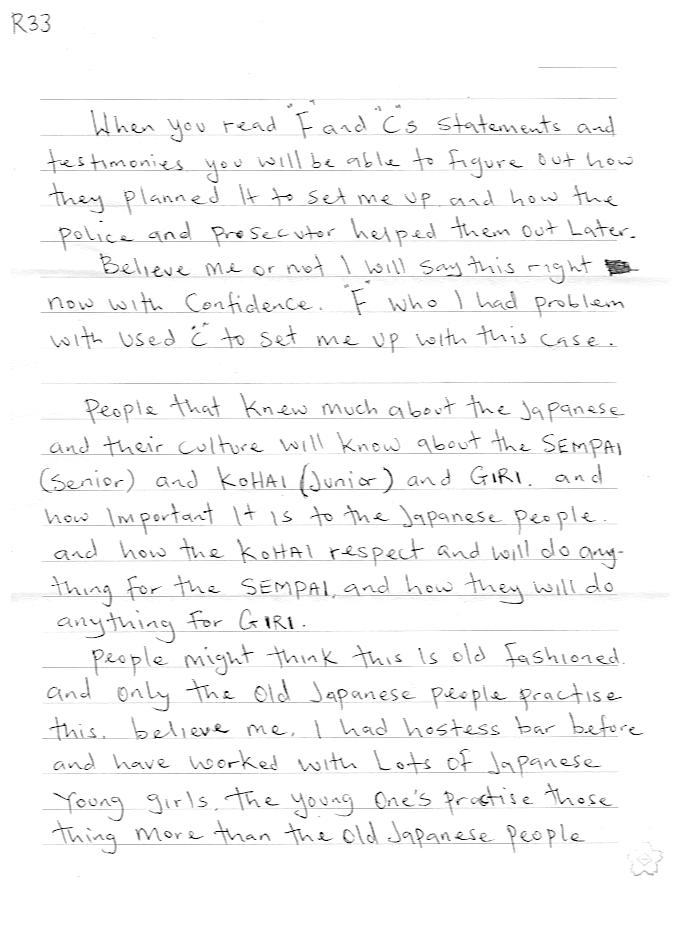 R33
When you read "F" and "C"s statements and
testimonies you will be able to figure out how
they planned It to set me up. and how the
police and prosecutor helped them out Later.
Believe me or not I will say this right
now with Confidence. "F" who I had problem
with used "C" to set me up with this case.
People that knew much about the Japanese
and their culture will know about the SEMPAI
(Senior) and KOHAI (Junior) and GIRI. and
how Important It is to the Japanese people.
and how the KOHAI respect and will do any-
thing for the SEMPAI, and how they will do
anything for GIRI.
People might think this is old fashioned.
and only the old Japanese people practise
this. believe me. I had hostess bar before
and have worked with Lots of Japanese
Young girls. the young one's practise those
thing more than the old Japanese people